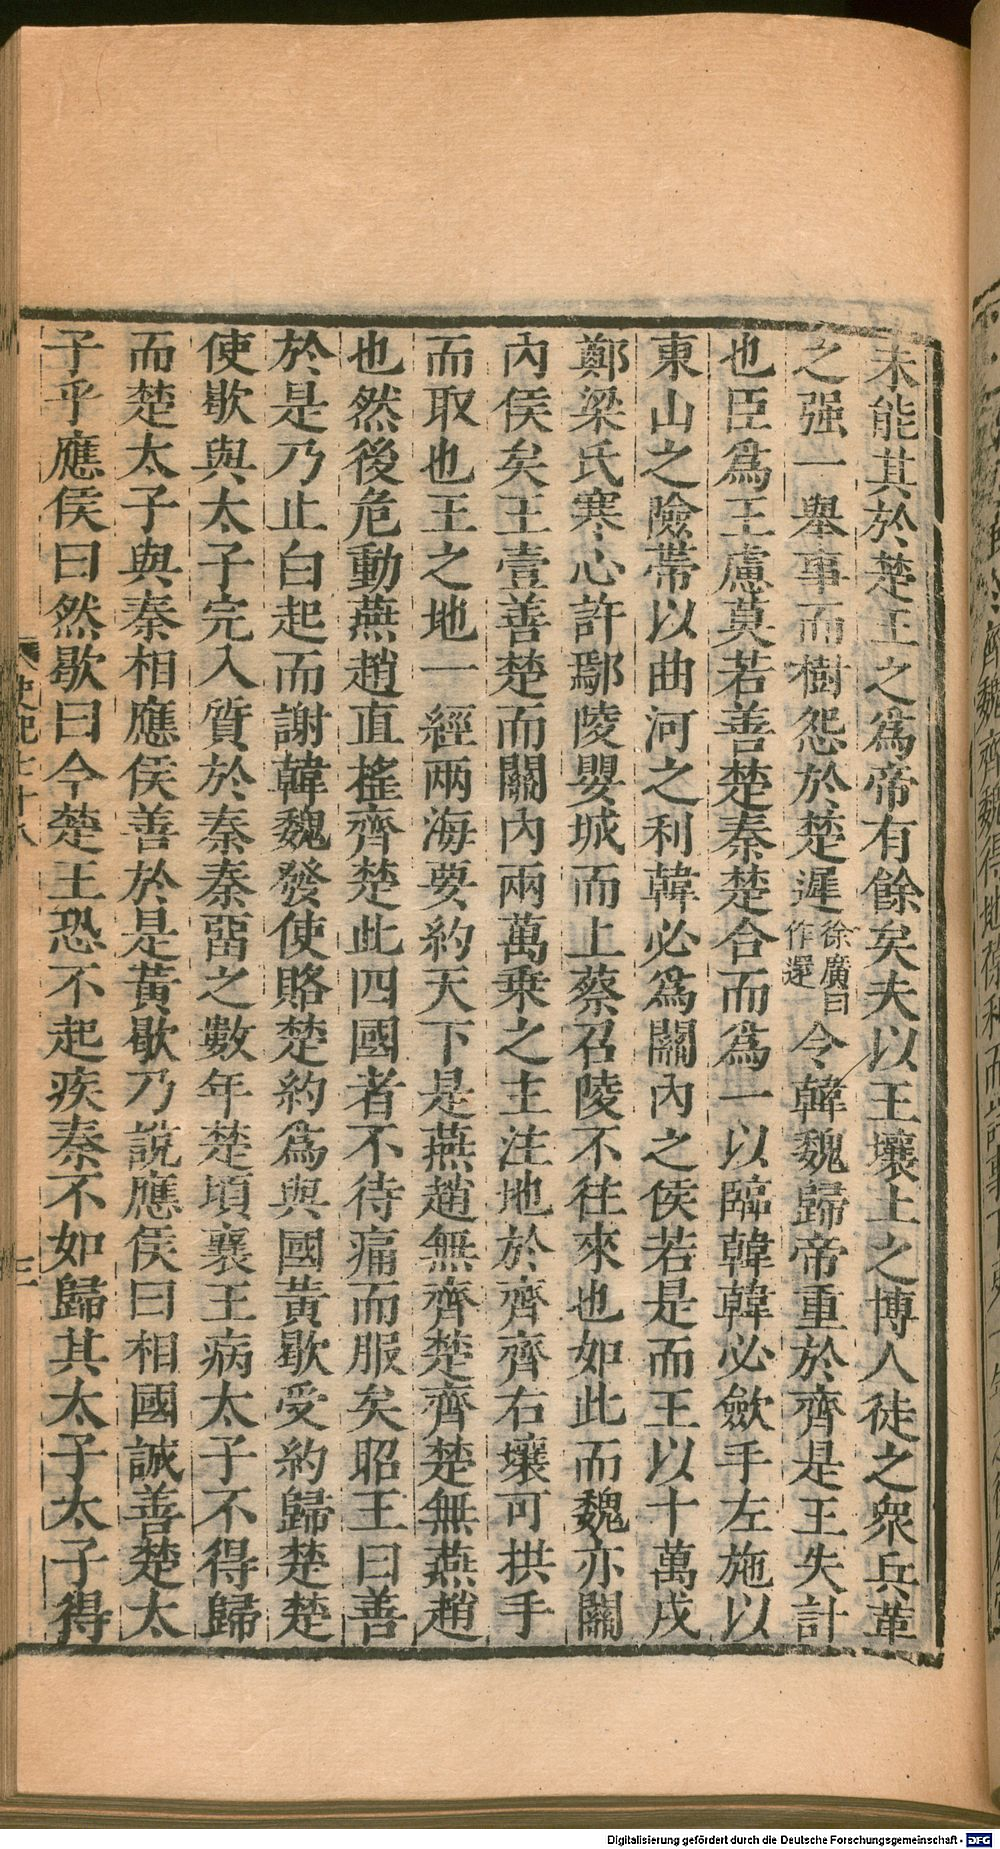 未能其於楚王之爲帝有餘矣夫以王壤土之博人徒之衆兵革
之强一舉事而樹怨於楚遲徐廣曰作還令韓魏歸帝重於齊是王失計
也臣爲王慮莫若善楚秦楚合而爲一以臨韓韓必斂手左施以
東山之險帶以曲河之利韓必爲關內之侯若是而王以十萬戍
鄭梁氏寒心許鄢陵嬰城而上蔡召陵不往來也如此而魏亦關
內侯矣王壹善楚而關內兩萬乗之主注地於齊齊右壤可拱手
而取也王之地一經兩海要約天下是燕趙無齊楚齊楚無燕趙
也然後危動燕趙直搖齊楚此四國者不待痛而服矣昭王曰善
於是乃止白起而謝韓魏發使賂楚約爲與國黃歇受約歸楚楚
使歇與太子完入質於秦秦畱之數年楚頃襄王病太子不得歸
而楚太子與秦相應侯善於是黃歇乃說應侯曰相國誠善楚太
子乎應侯曰然歇曰今楚王恐不起疾秦不如歸其太子太子得
史記七十八
三
Digitalisierung gefördert durch die Deutsche Forschungsgemeinschaft - DFG